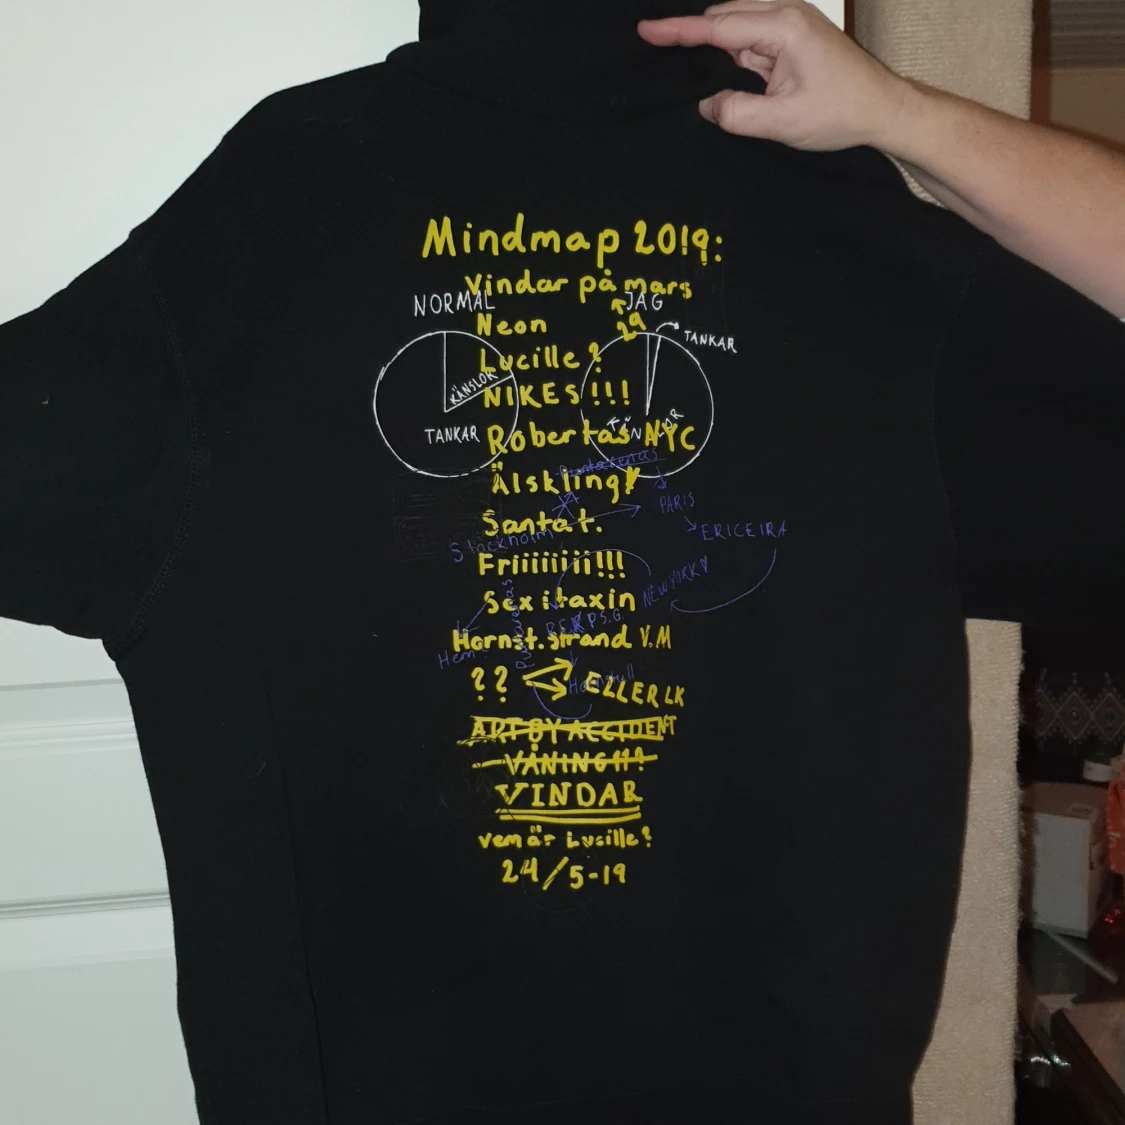 Mindmap 2019:
Vindar på mars
NORMAL
JAG
Neon
29
TANKAR
Lucille?
KÄNSLOR
NIKES!!!
TANKAR
KÄNSLOR
Robertas NYC
Puntarenas
Älskling
PARIS
Santa t.
ERICEIRA
Stockholm
Friiiiiiii!!!
NEW YORK
Sex i taxin
Hornst.strand V.M
Hem
?? ELLER LK
ART BY ACCIDENT
VÅNING !!?
VINDAR
vem är Lucille?
24/5-19